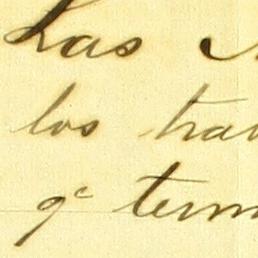 Las
los trav
qe term